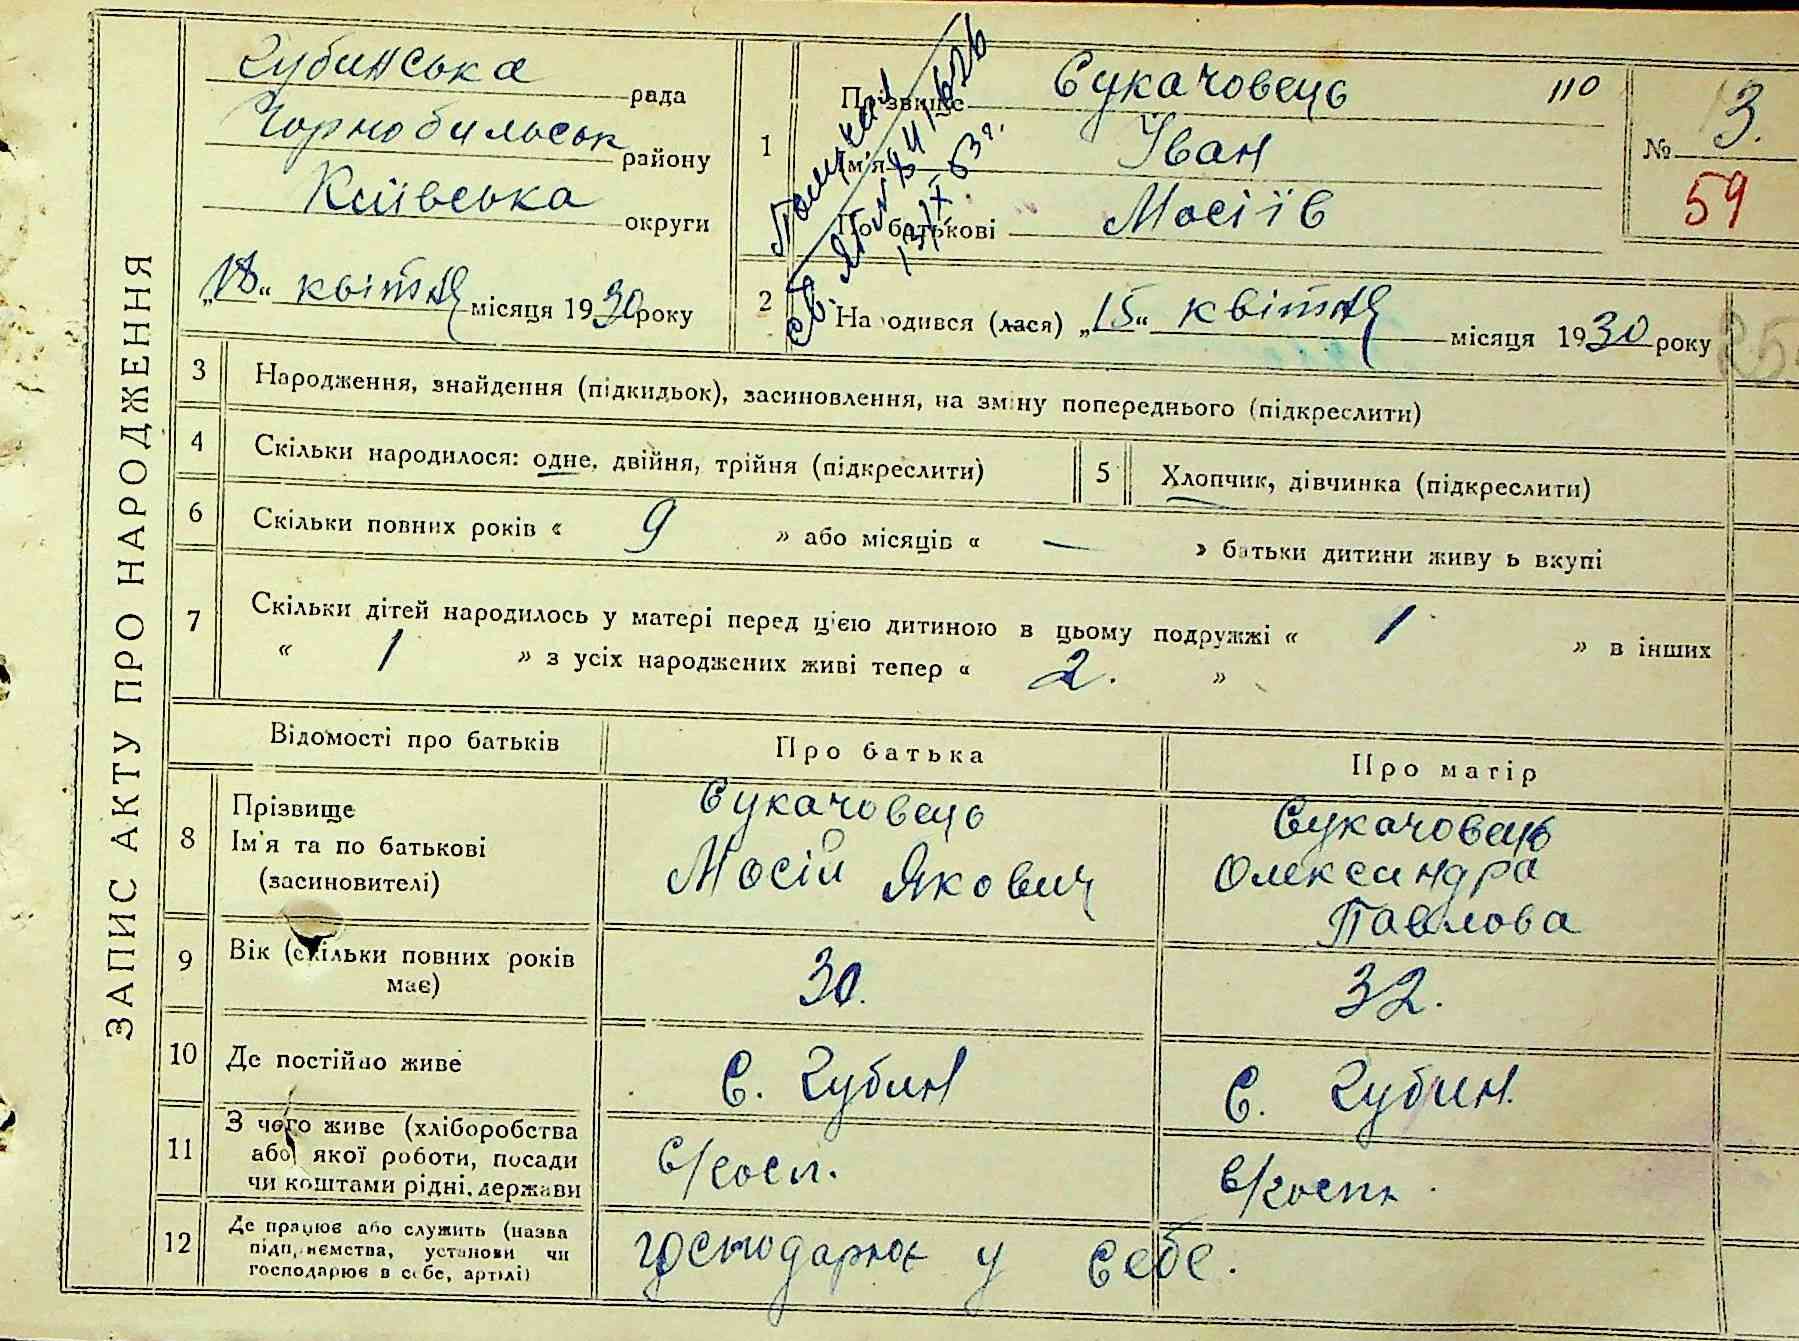 ЗАПИС АКТУ ПРО НАРОДЖЕННЯ
Губинська рада
Чорнобильськ району
Київська округи
„18“ квітня місяця 1930 року
1
Прізвище Сукачовець 110
Ім'я Іван
По батькові Мосіїв
№ 3.
59
13/IX-63 г.
2 Народився (лася) „15“ квітня місяця 1930 року
3 Народження, знайдення (підкидьок), засиновлення, на зміну попереднього (підкреслити)
4 Скільки народилося: одне, двійня, трійня (підкреслити) 5 Хлопчик, дівчинка (підкреслити)
6 Скільки повних років « 9 » або місяців « — » батьки дитини живуть вкупі
7 Скільки дітей народилось у матері перед ц'єю дитиною в цьому подружжі « 1 » в інших
« 1 » з усіх народжених живі тепер « 2. »
Відомості про батьків Про батька Про матір
8 Прізвище Ім'я та по батькові (засиновителі)
Сукачовець
Мосій Якович
Сукачовець
Олександра
Павлова
9 Вік (скільки повних років має) 30. 32.
10 Де постійно живе С. Губин С. Губин.
11 З чого живе (хліборобства
або якої роботи, посади
чи коштами рідні, держави
с/госп. с/госп.
12 Де працює або служить (назва
підприємства, установи чи
господарює в себе, артілі)
господарює у себе.